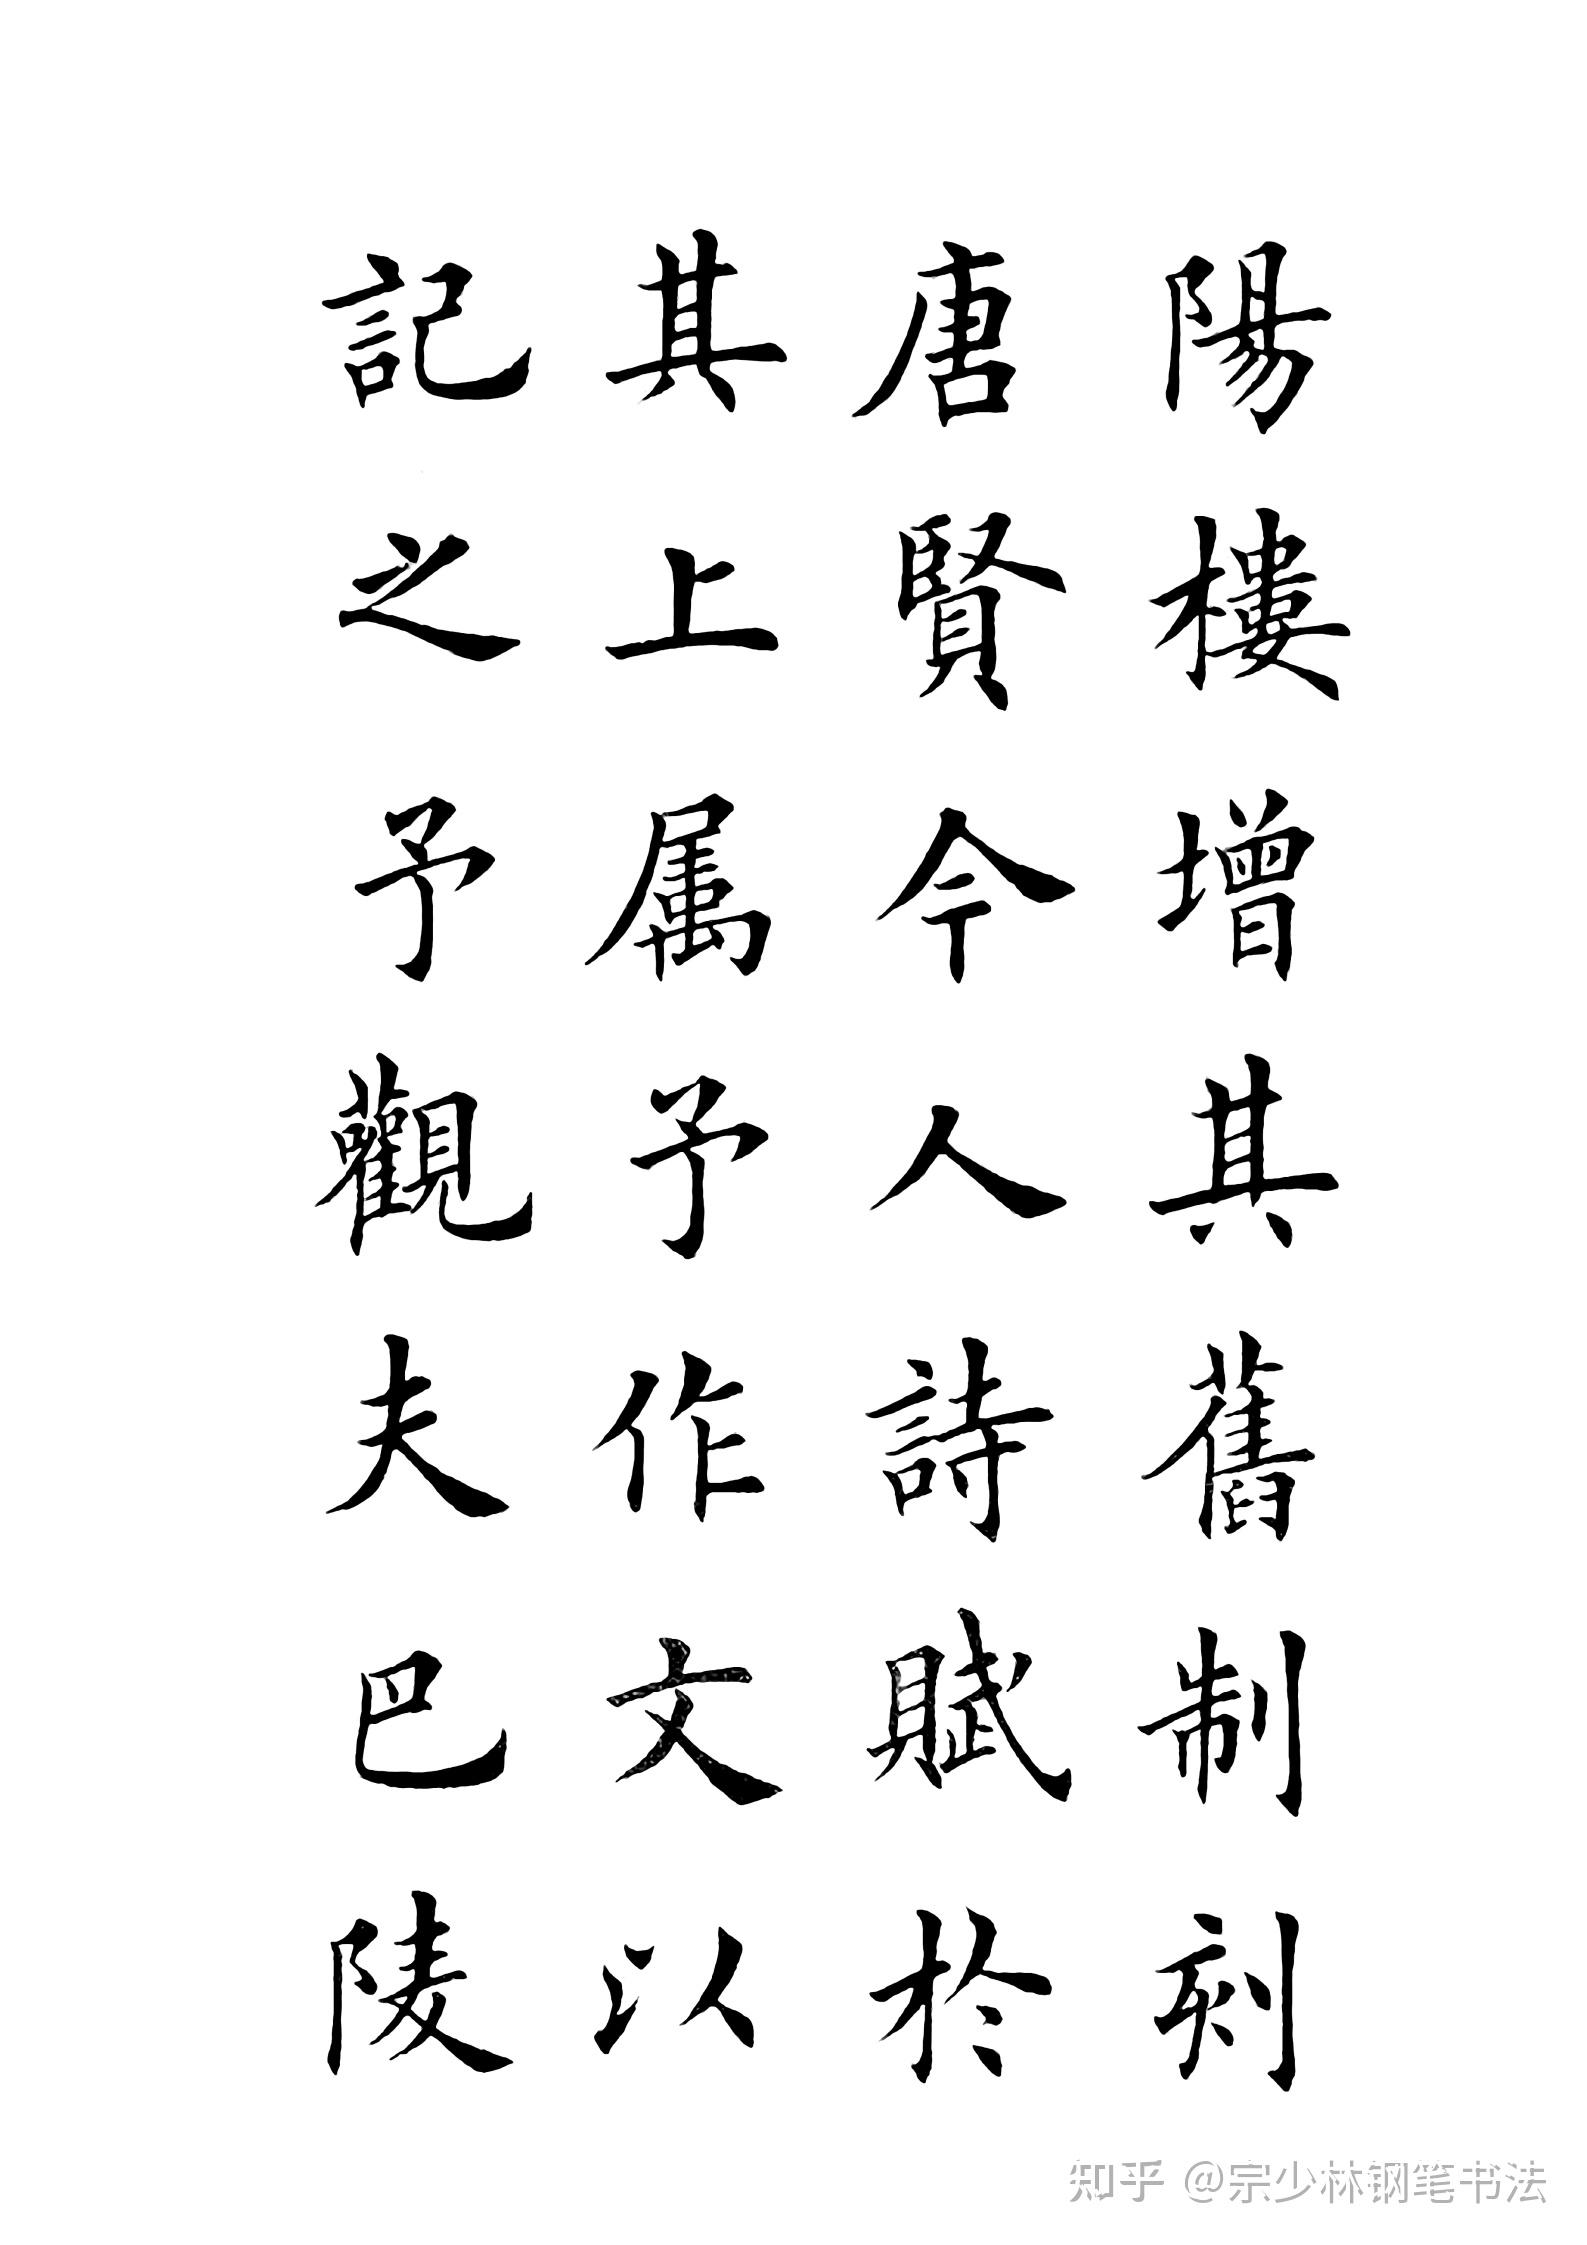 陽樓增其舊制刻
唐賢今人詩賦於
其上属予作文以
記之予觀夫巴陵
知乎 @宗少林钢笔书法